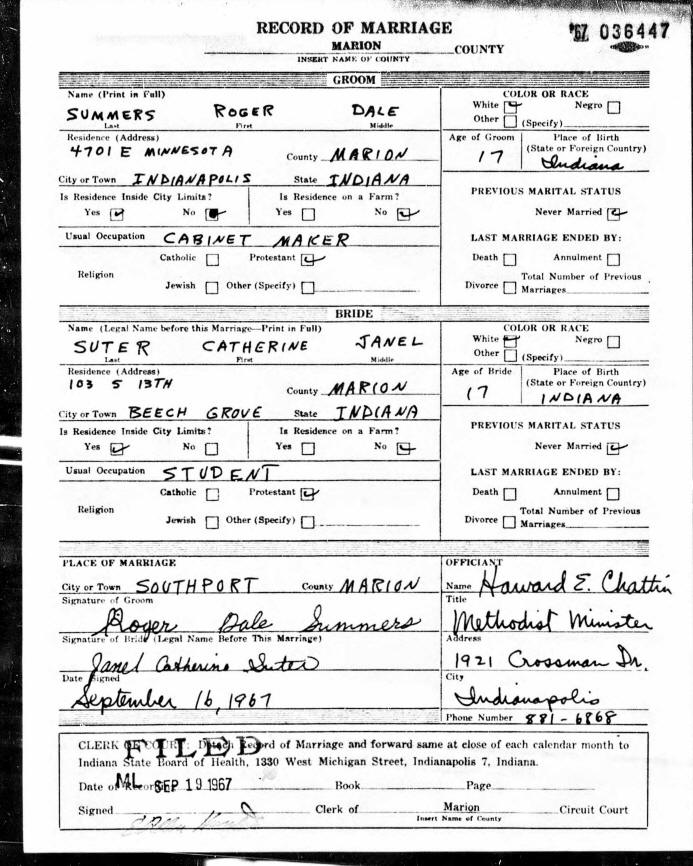 RECORD OF MARRIAGE
'67 036447
MARION COUNTY
INSERT NAME OF COUNTY
GROOM
Name (Print in Full)
SUMMERS ROGER DALE
Last First Middle
COLOR OR RACE
White Negro
Other (Specify)
Residence (Address)
4701 E MINNESOTA County MARION
Age of Groom Place of Birth
(State or Foreign Country)
17 Indiana
City or Town INDIANAPOLIS State INDIANA
Is Residence Inside City Limits? Is Residence on a Farm?
Yes No Yes No
PREVIOUS MARITAL STATUS
Never Married
Usual Occupation CABINET MAKER
LAST MARRIAGE ENDED BY:
Religion
Catholic Protestant
Jewish Other (Specify)
Death Annulment
Divorce Total Number of Previous
Marriages
BRIDE
Name (Legal Name before this Marriage—Print in Full)
SUTER CATHERINE JANEL
Last First Middle
COLOR OR RACE
White Negro
Other (Specify)
Residence (Address)
103 S 13TH County MARION
Age of Bride Place of Birth
(State or Foreign Country)
17 INDIANA
City or Town BEECH GROVE State INDIANA
Is Residence Inside City Limits? Is Residence on a Farm?
Yes No Yes No
PREVIOUS MARITAL STATUS
Never Married
Usual Occupation STUDENT
LAST MARRIAGE ENDED BY:
Religion
Catholic Protestant
Jewish Other (Specify)
Death Annulment
Divorce Total Number of Previous
Marriages
PLACE OF MARRIAGE
City or Town SOUTHPORT County MARION
Signature of Groom
Roger Dale Summers
Signature of Bride (Legal Name Before This Marriage)
Janel Catherine Suter
Date Signed
September 16, 1967
OFFICIANT
Name Howard E. Chattin
Title
Methodist Minister
Address
1921 Crossman Dr.
City
Indianapolis
Phone Number 881-6868
CLERK OF COURT: Detach Record of Marriage and forward same at close of each calendar month to
FILED
Indiana State Board of Health, 1330 West Michigan Street, Indianapolis 7, Indiana.
Date of Record SEP 19 1967 Book Page
ML
Signed Clerk of Marion Circuit Court
Insert Name of County